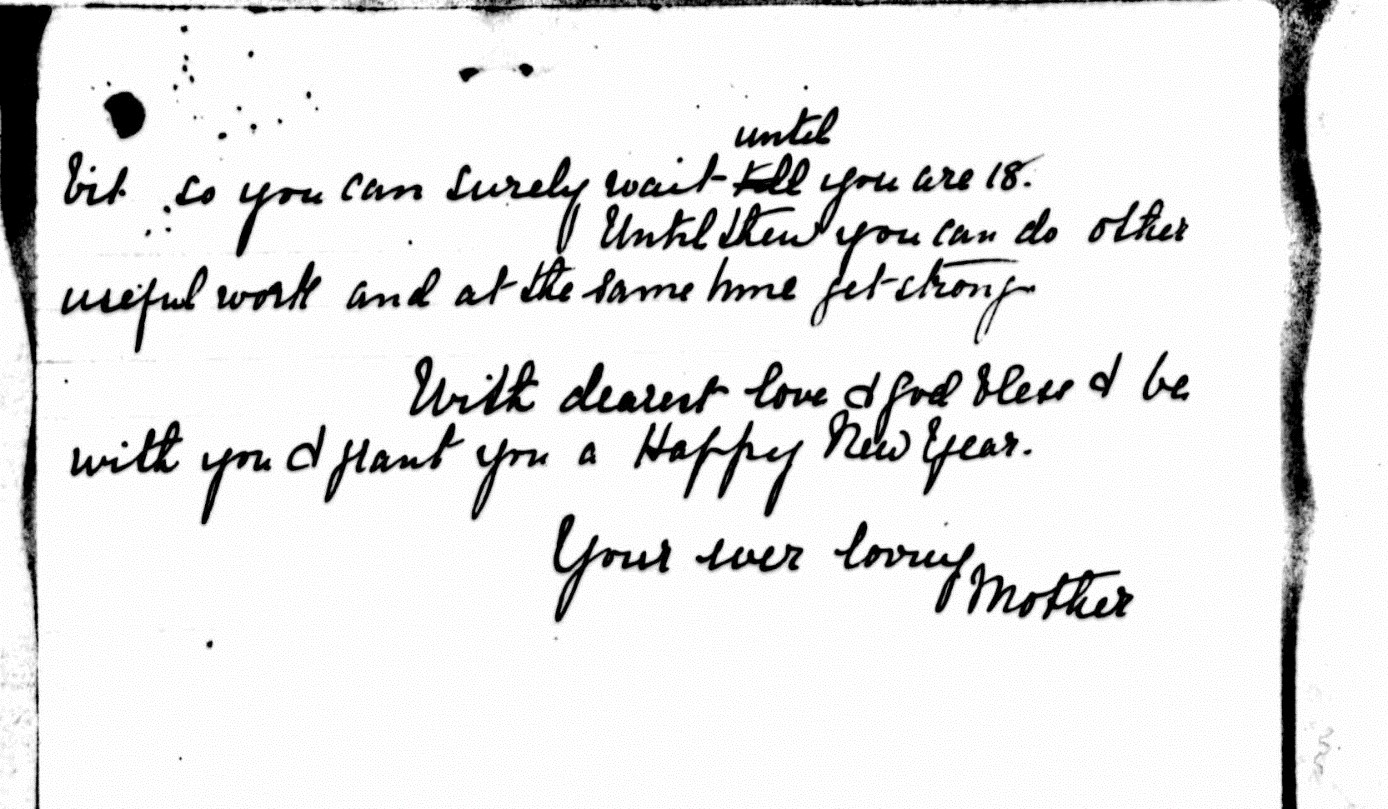 until
bit so you can surely wait till you are 18.
Until then you can do other
useful work and at the same time get strong
With dearest love & God bless & be
with you & grant you a Happy New Year.
Your ever loving
Mother